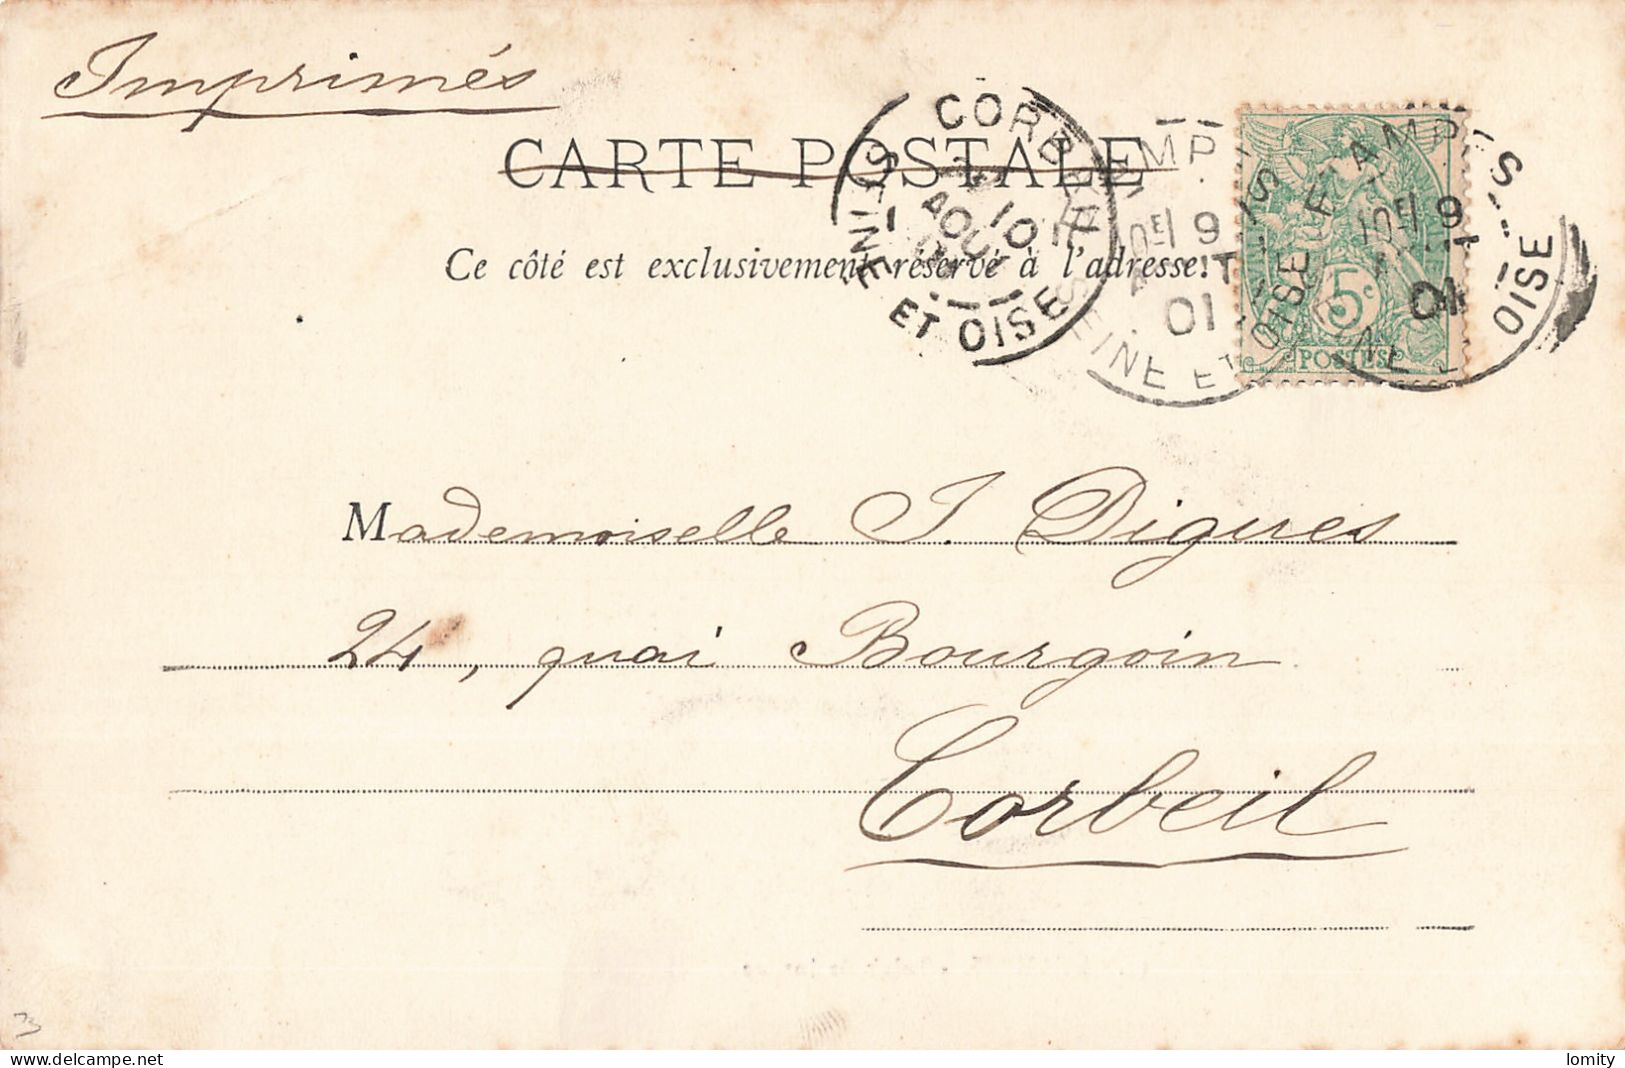 Imprimés
CARTE POSTALE
Ce côté est exclusivement réservé à l'adresse.
CORBEIL
SEINE ET OISE
10
AOUT
ETAMPES
SEINE ET OISE
10E 9
01
ETAMPES
SEINE ET OISE
10E 9
01
5c
POSTES
Mademoiselle J. Digues
24, quai Bourgoin
Corbeil
3
delcampe.net
lomity